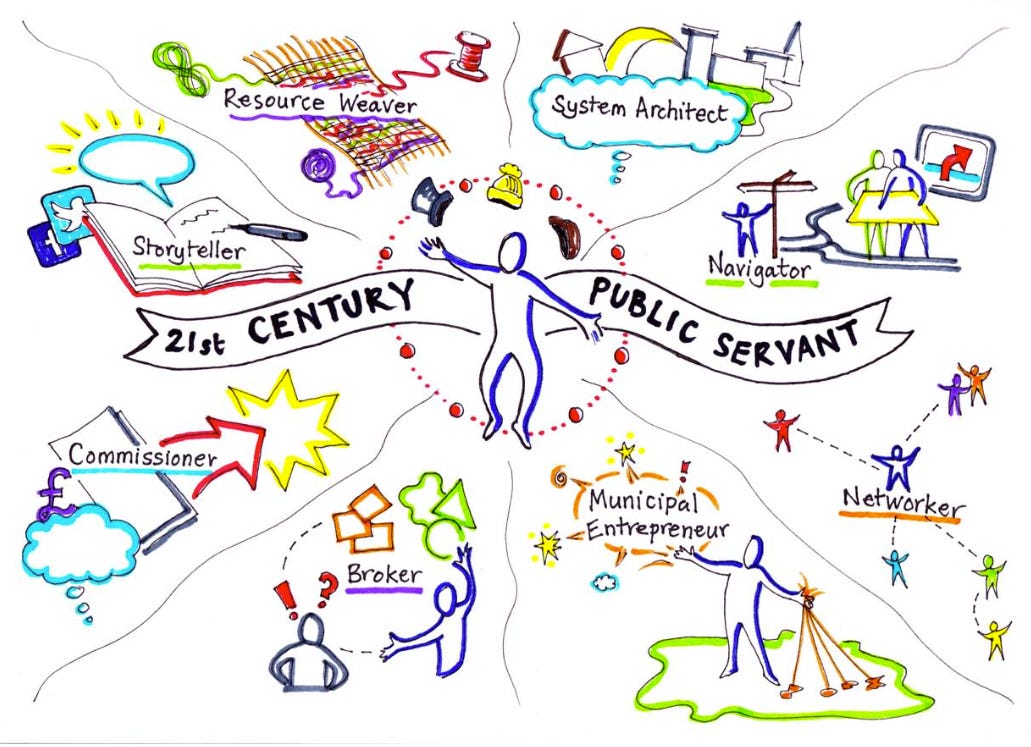 Resource Weaver
System Architect
Storyteller
Navigator
21st CENTURY PUBLIC SERVANT
Commissioner
£
Networker
Municipal
Entrepreneur
!
Broker
! ?